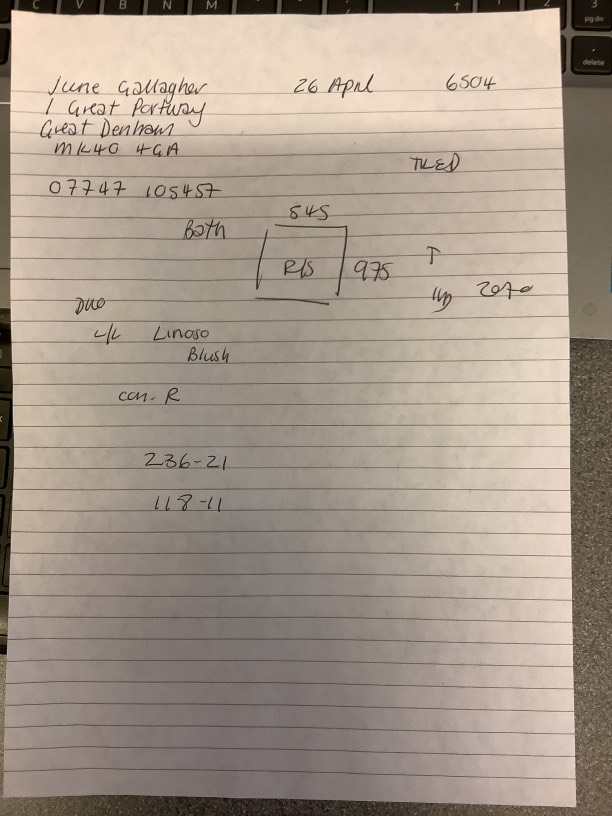 June Gallagher 26 April 6504
1 Great Portway
Great Denham
MK40 4GA
TILED
07747 105457
545
Bath
R/S 975
Up 2070
Duo
L/L Linoso
Blush
con. R
236-21
118-11